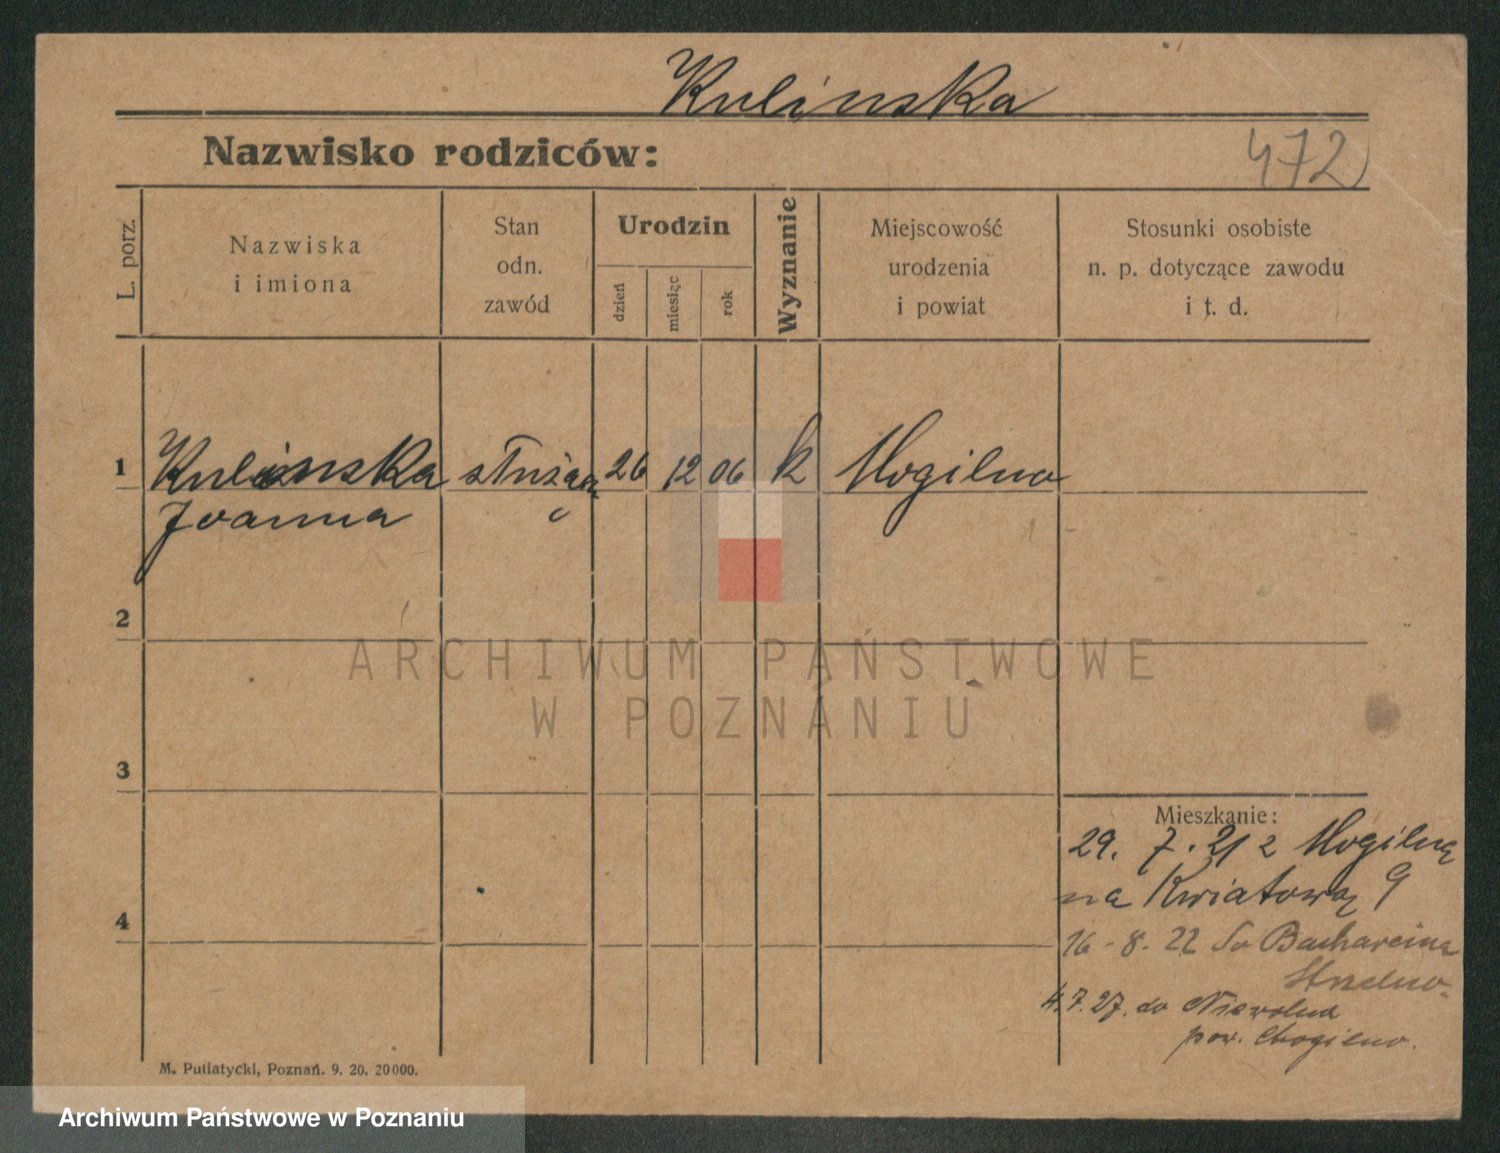 Kulinska
Nazwisko rodziców:
472
L. porz.
Nazwiska
i imiona
Stan
odn.
zawód
Urodzin
dzień
miesiąc
rok
Wyznanie
Miejscowość
urodzenia
i powiat
Stosunki osobiste
n. p. dotyczące zawodu
i t. d.
1 Kulinska służąca 26 12 06 k Mogilno
Joanna
2
3
4
ARCHIWUM PAŃSTWOWE
W POZNANIU
Mieszkanie:
29. 7. 21 z Mogilna
na Kwiatową 9
16-8. 22 do
Strzelno.
4.7.27. do Niewolna
pow. Mogilno.
M. Putiatycki, Poznań. 9. 20. 20000.
Archiwum Państwowe w Poznaniu